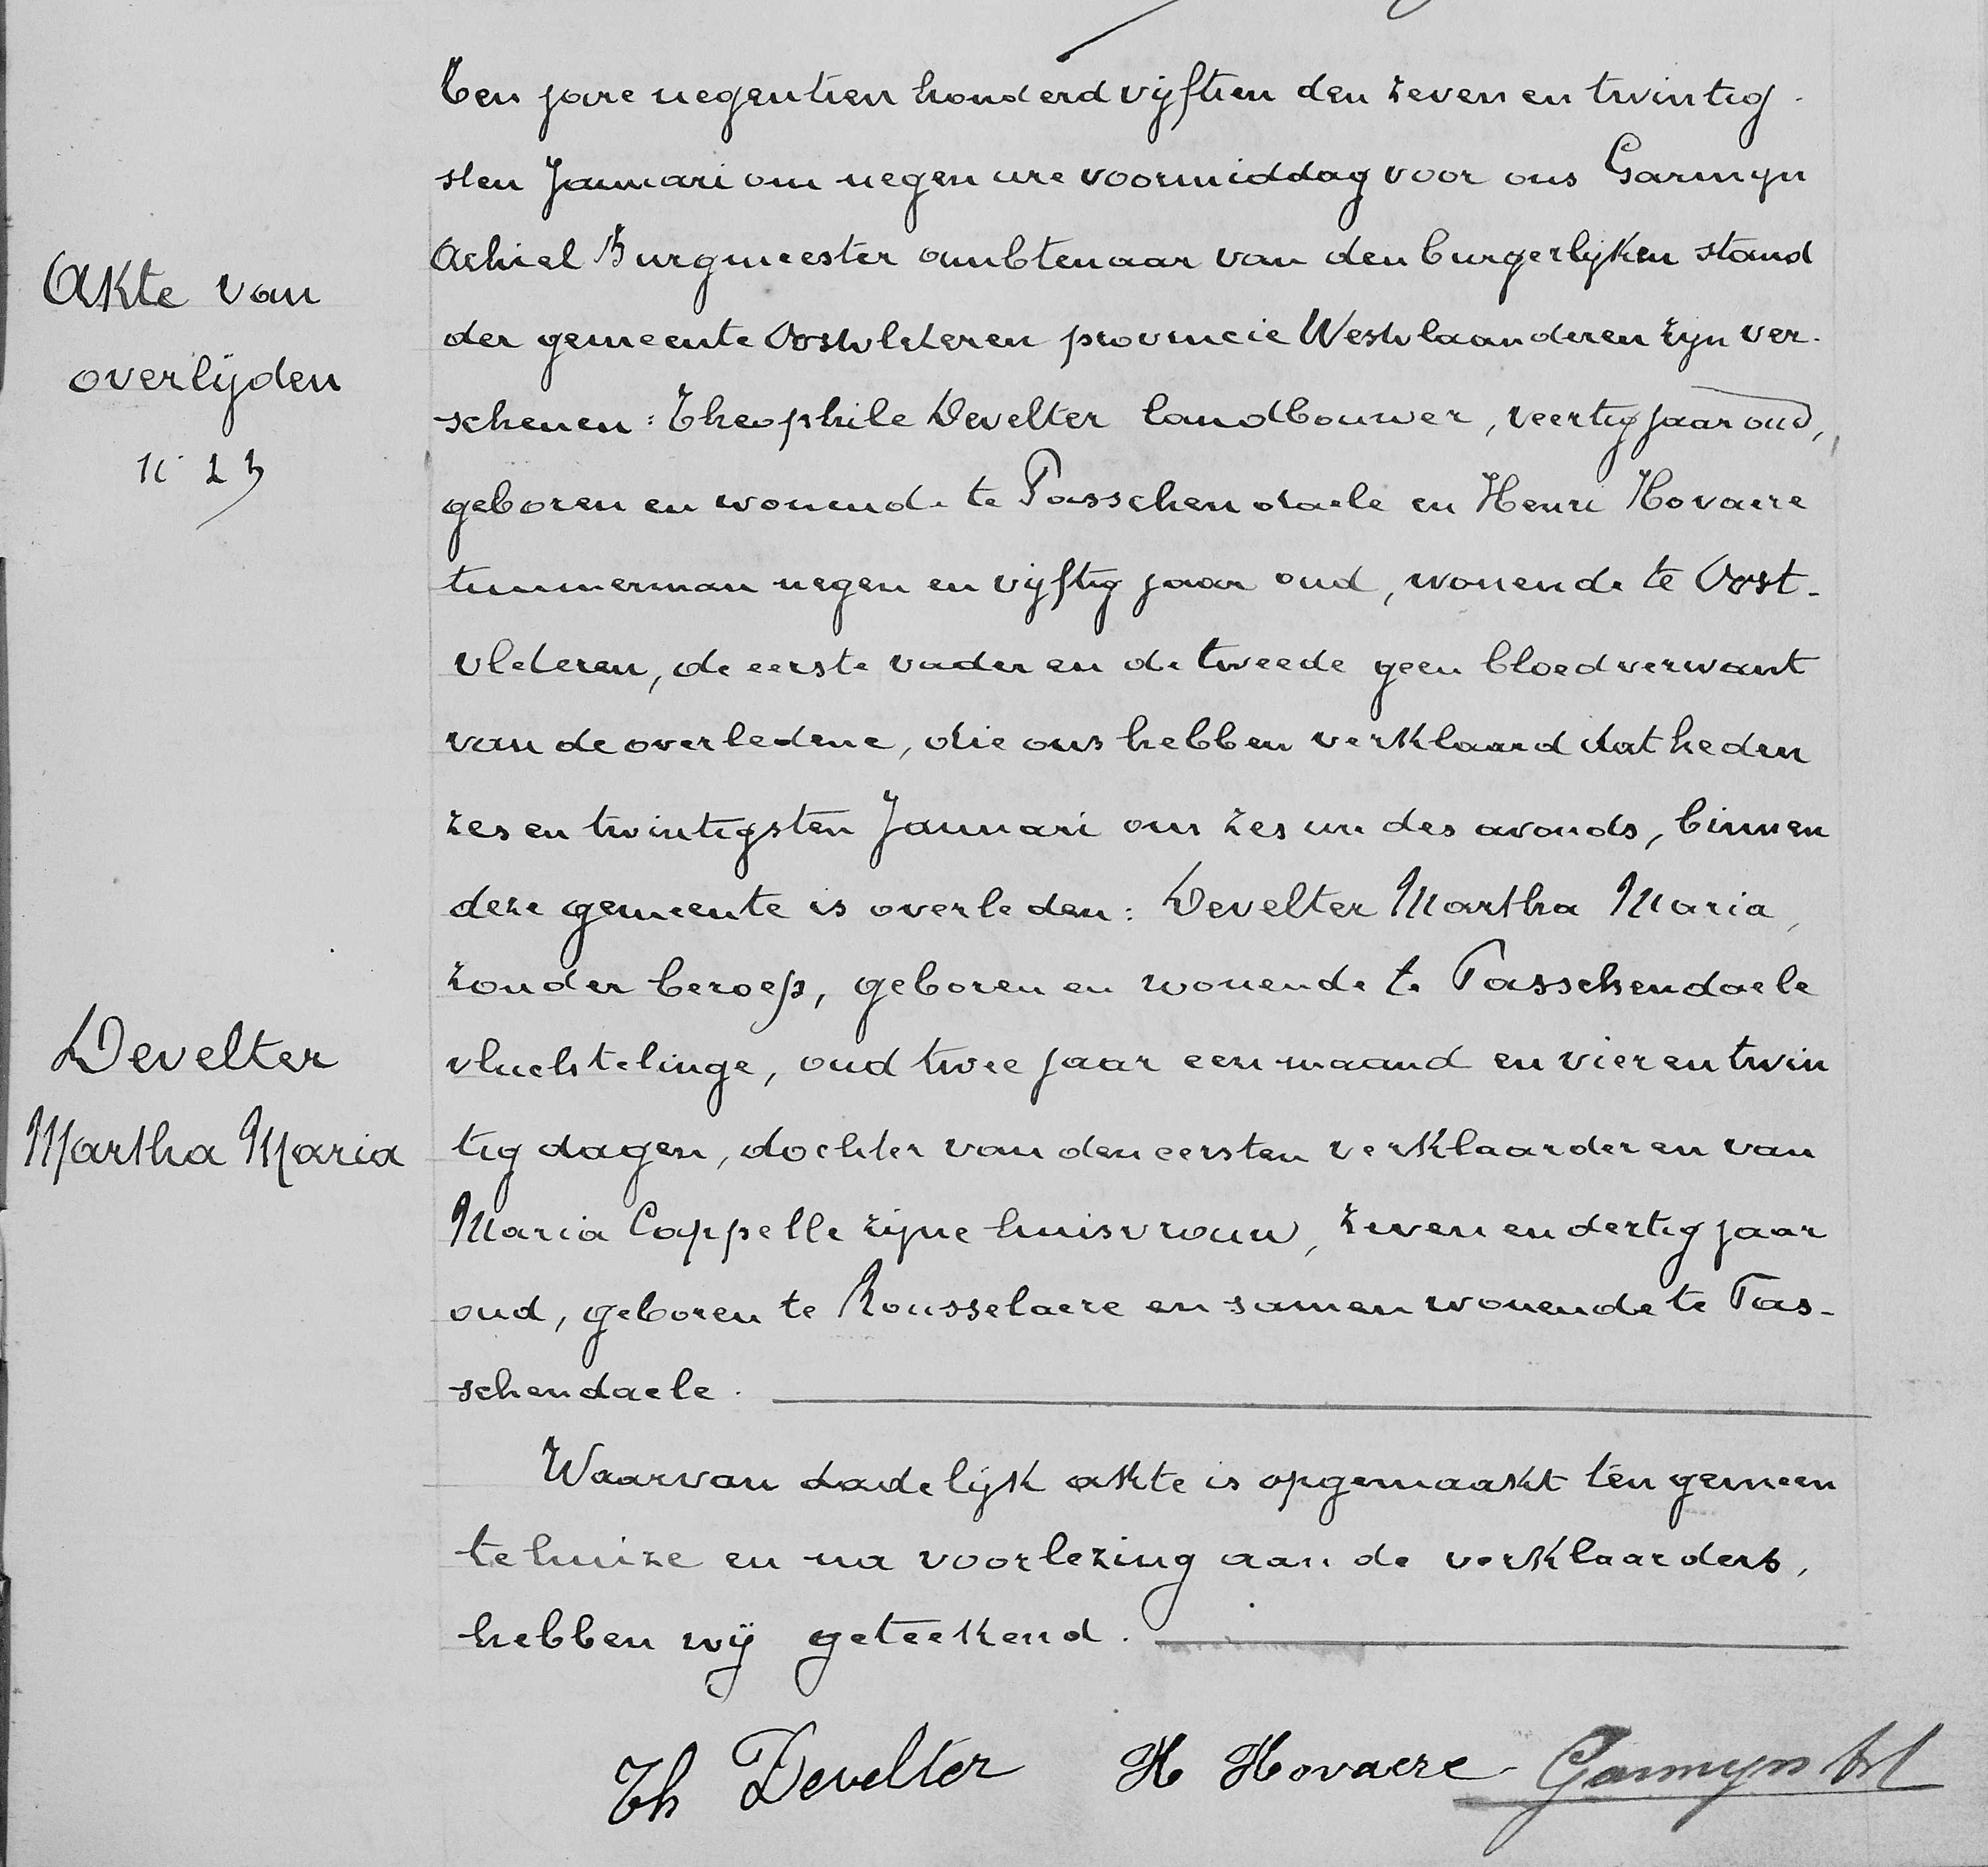 Akte van
overlijden
n° 23
Develter
Martha Maria
Ten jare negentien honderd vijftien den zeven en twintig-
sten Januari om negen ure voormiddag voor ons Garmyn
Achiel Burgmeester ambtenaar van den burgerlijken stand
der gemeente Oostvleteren provincie Westvlaanderen zijn ver-
schenen : Theophile Develter landbouwer, veertig jaar oud,
geboren en wonende te Passchendaele en Henri Hovaere
timmerman negen en vijftig jaar oud, wonende te Oost-
vleteren, de eerste vader en de tweede geen bloedverwant
van de overledene, die ons hebben verklaard dat heden
zes en twintigsten Januari om zes ure des avonds, binnen
deze gemeente is overleden : Develter Martha Maria,
zonder beroep, geboren en wonende te Passchendaele
vluchtelinge, oud twee jaar een maand en vier en twin
tig dagen, dochter van den eersten verklaarder en van
Maria Cappelle zijne huisvrouw, zeven en dertig jaar
oud, geboren te Rousselaere en samen wonende te Pas-
schendaele.
Waarvan dadelijk akte is opgemaakt ten gemeen
tehuize en na voorlezing aan de verklaarders,
hebben wij geteekend.
Th Develter H Hovaere Garmyn